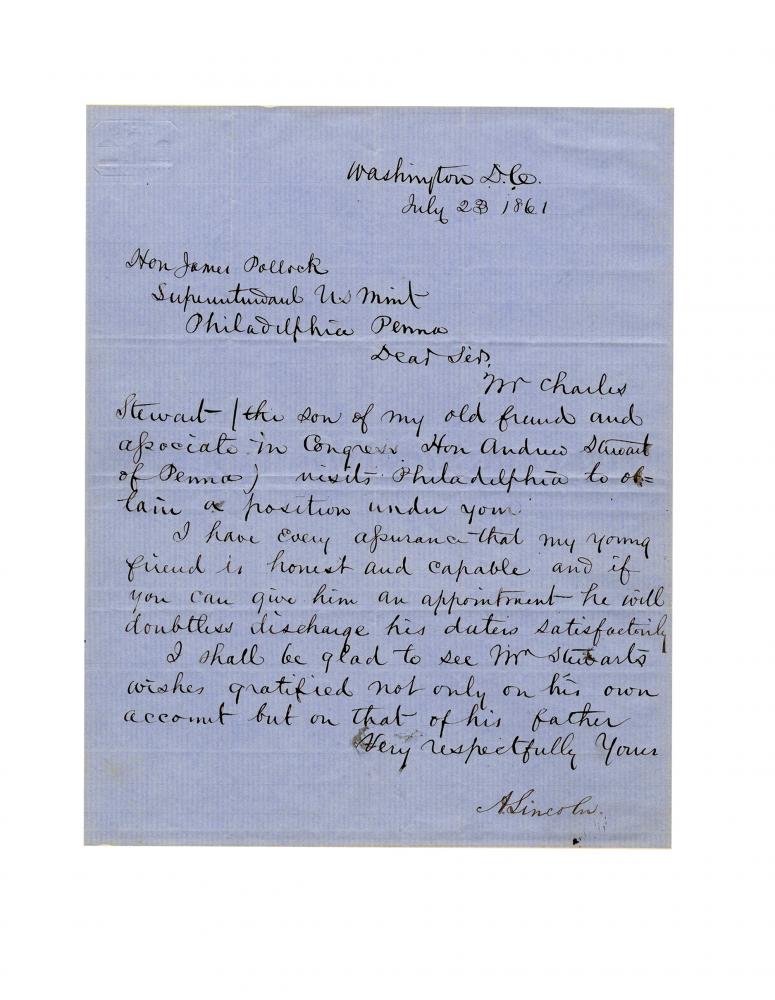 Washington D.C.
July 23 1861
Hon James Pollock
Superintendant US Mint
Philadelphia Penna
Dear Sir,
Mr Charles
Stewart (the son of my old friend and
associate in Congress Hon Andrew Stewart
of Penna) visits Philadelphia to ob=
tain a position under you
I have every assurance that my young
friend is honest and capable and if
you can give him an appointment he will
doubtless discharge his duties satisfactorily
I shall be glad to see Mr Stewarts
wishes gratified not only on his own
account but on that of his father
Very respectfully Yours
A Lincoln.